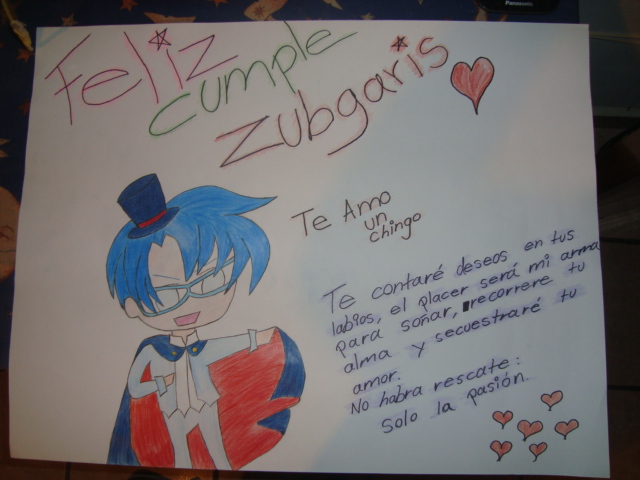 Panasonic
Feliz
cumple
zubgaris
Te Amo
un
chingo
Te contaré deseos en tus
labios, el placer será mi arma
para soñar, recorrere tu
alma y secuestraré tu
amor.
No habra rescate:
solo la pasión.